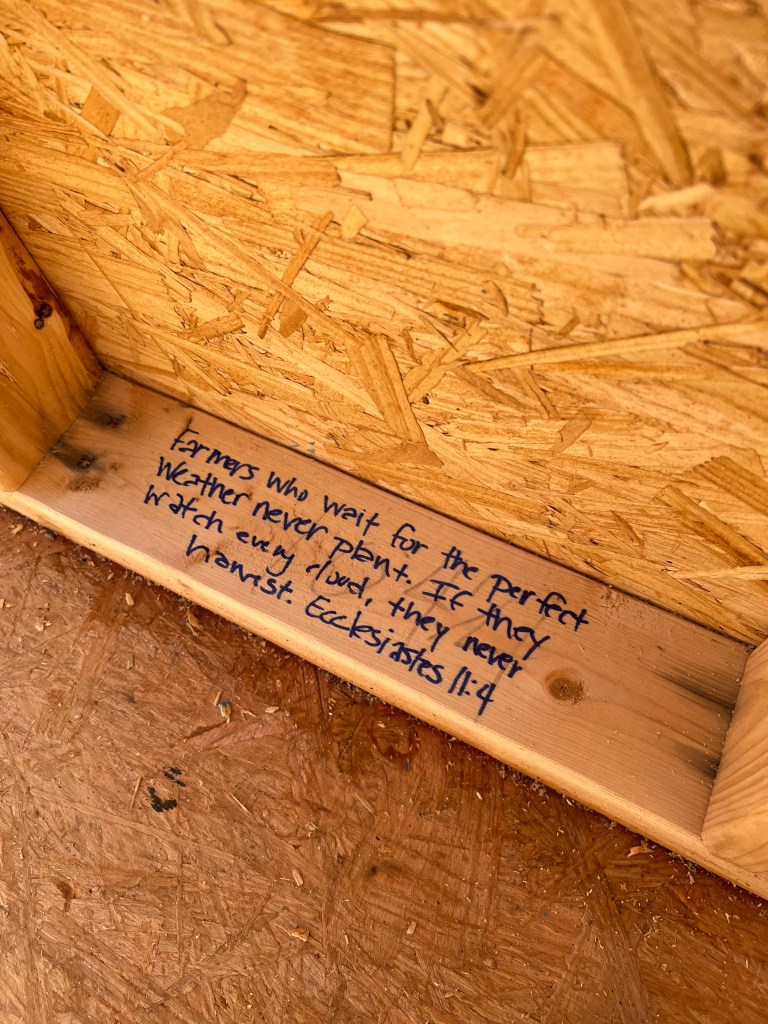 Farmers who wait for the perfect
weather never plant. If they
watch every cloud, they never
harvest. Ecclesiastes 11:4